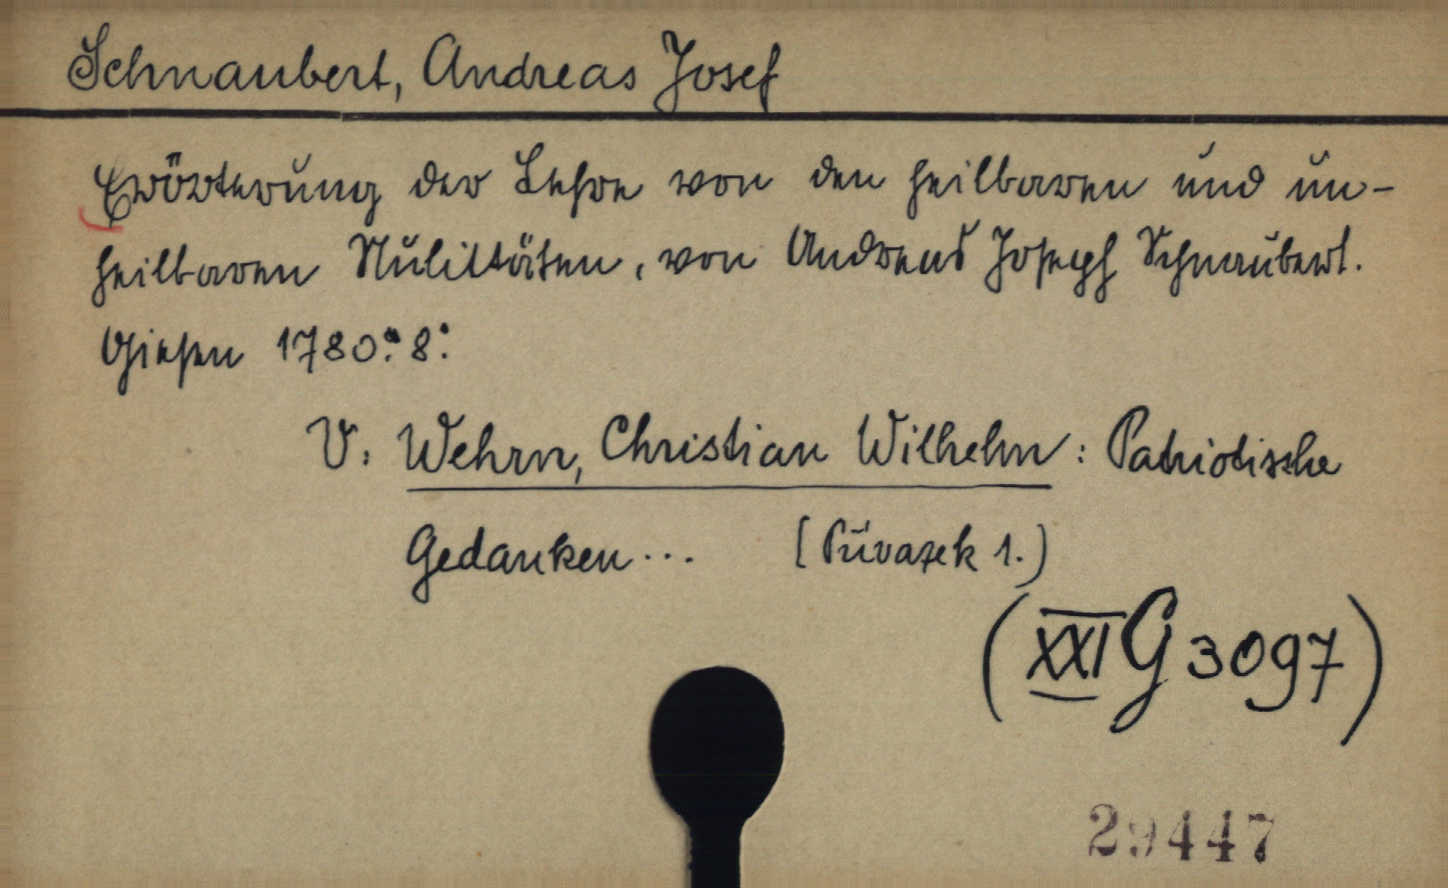 Schnaubert, Andreas Josef
Erörterung der Lehre von den heilbaren und un-
heilbaren Nulitäten, von Andreas Joseph Schnaubert.
Giesen 1780:8:
V: Wehrn, Christian Wilhelm: Patriotische
Gedanken... [Přívazek 1.)
(XXI G 3097)
29447